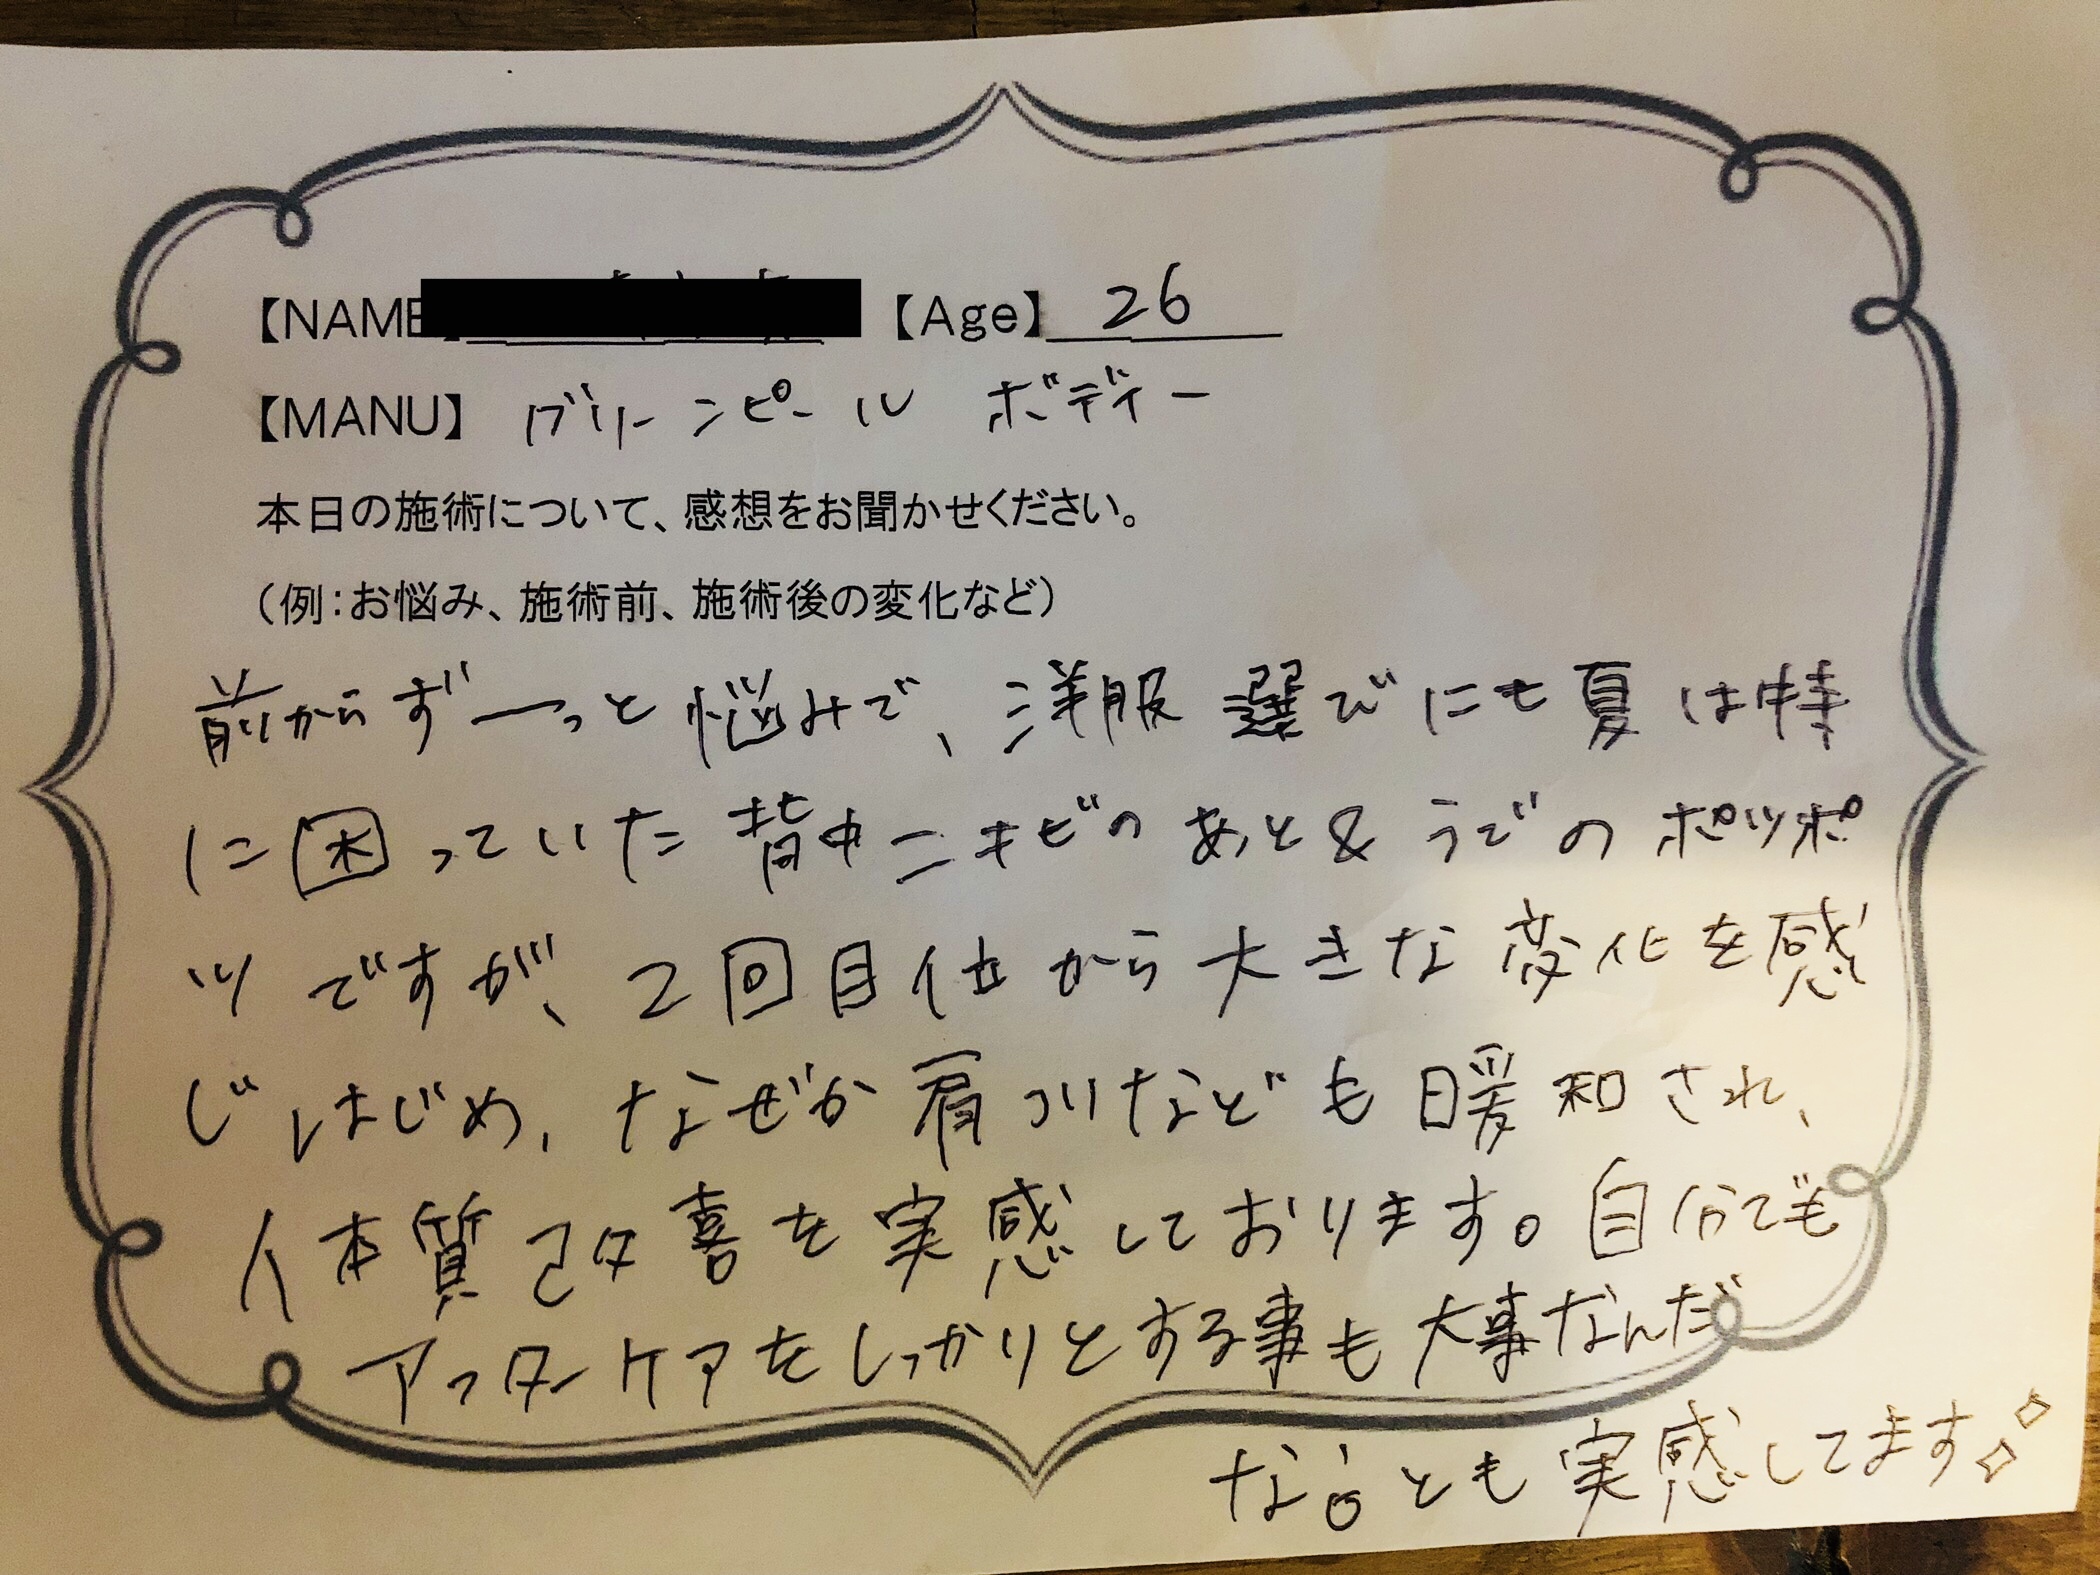 【NAME 【Age】 26
【MANU】 グリーンピール ボディー
本日の施術について、感想をお聞かせください。
（例：お悩み、施術前、施術後の変化など）
前からずーっと悩みで、洋服選びにも夏は特
に困っていた背中ニキビのあと&うでのポツポ
ツですが、2回目位から大きな変化を感
じはじめ、なぜか肩コリなども暖和され、
体質改善を実感しております。自分でも
アフターケアをしっかりとする事も大事なんだ
な。とも実感してます